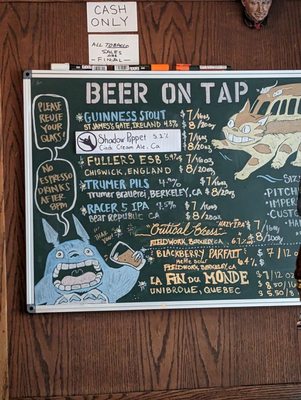 CASH
ONLY
ALL TOBACCO
SALES
ARE
FINAL
BEER ON TAP
PLEASE
REUSE
YOUR
GLASS!
NO
ESPRESSO
DRINKS
AFTER
8PM
GUINNESS STOUT $7/16oz
ST JAMES'S GATE, IRELAND 4.3% $8/20oz
Shadow Puppet 5.2%
Cask Cream Ale, CA
FULLERS ESB 5.9% $7/16oz
CHISWICK, ENGLAND $8/20oz
TRUMER PILS 4.9% $7/16oz
Trumer Brauerei, BERKELEY, CA $8/20oz
RACER 5 IPA 7.5% $7/16oz
Bear REPUBLIC CA $8/20oz
"Critical Excess" HAZY IPA $7/16oz
FIELDWORK, BERKELEY, CA 6.7% $8/20oz
BLACKBERRY PARFAIT $7/12oz
FIELDWORK, BERKELEY, CA
LA FIN DU MONDE $7/12oz
UNIBROUE, QUEBEC
PITCH
IMPER
CUST